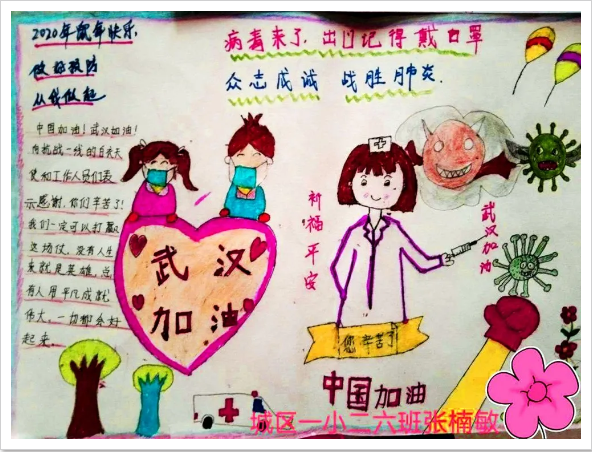 2020年鼠年快乐,
做好预防
从我做起
中国加油！武汉加油！
向抗战一线的白衣天
使和工作人员们表
示感谢,你们辛苦了!
我们一定可以打赢
这场仗,没有人生
来就是英雄,总
有人用平凡成就
伟大,一切都会好
起来.
病毒来了,出门记得戴口罩
众志成诚 战胜肺炎.
武汉
加油
祈福平安
武汉加油
您辛苦了
中国加油
城区一小二六班张楠敏